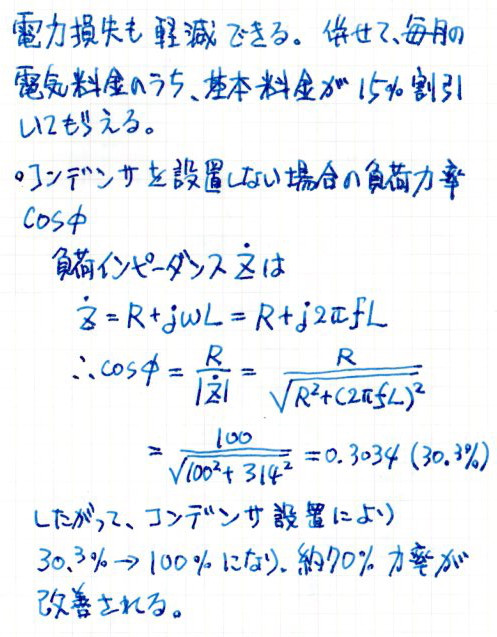 電力損失も軽減できる。併せて、毎月の
電気料金のうち、基本料金が15%割引
いてもらえる。
・コンデンサを設置しない場合の負荷力率
cosφ
負荷インピーダンスŻは
Ż = R+jωL = R+j2πfL
∴cosφ = R/|Ż| = R/√(R²+(2πfL)²)
= 100/√(100²+314²) = 0.3034 (30.3%)
したがって、コンデンサ設置により
30.3%→100%になり、約70%力率が
改善される。